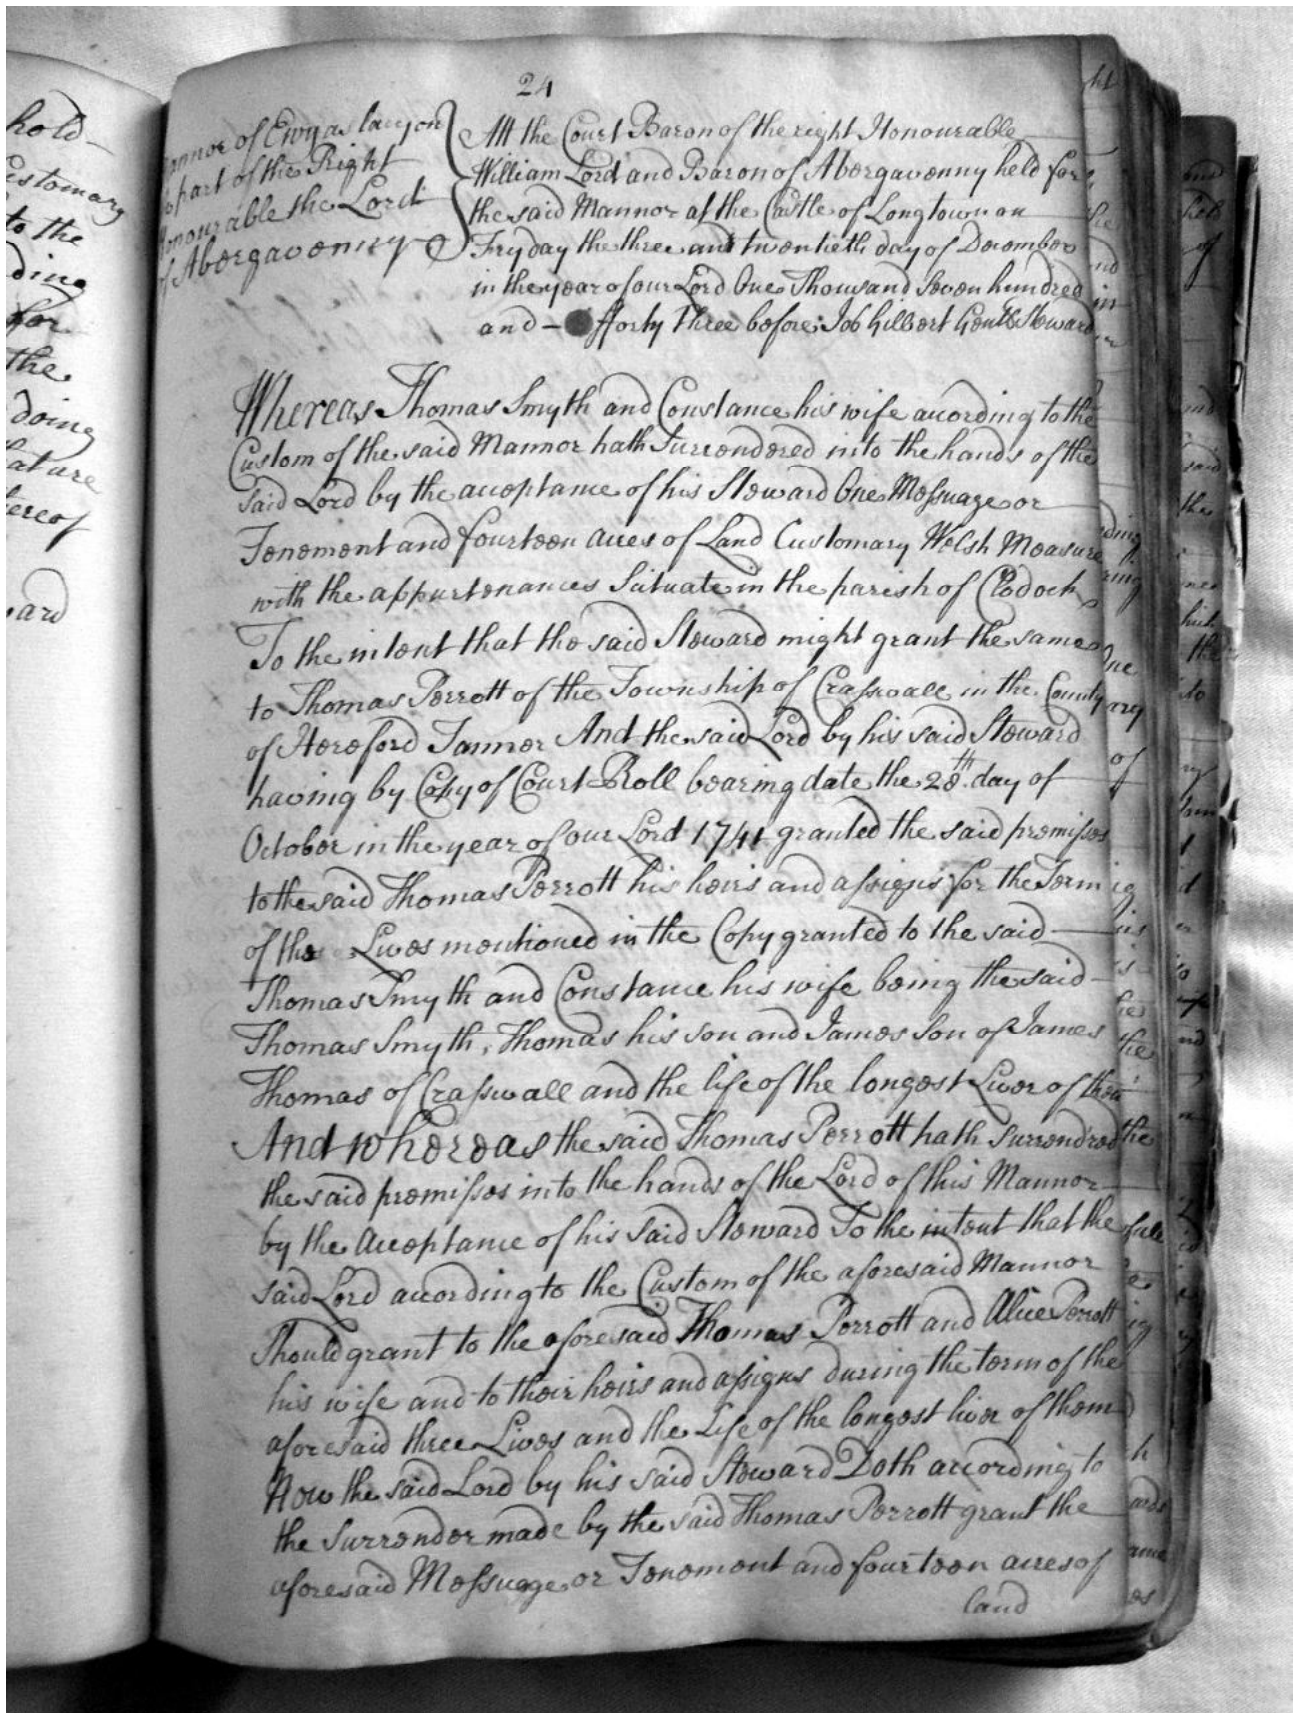 24
Mannor of Ewyas lacy on
part of the Right
Honourable the Lord
of Abergavenny
Att the Court Baron of the right Honourable
William Lord and Baron of Abergavenny held for
the said Mannor at the Castle of Longtown on
Fryday the three and twentieth day of December
in the year of our Lord One Thousand Seven hundred
and — fforty three before Job Gilbert Gentl Steward
Whereas Thomas Smyth and Constance his wife acording to the
Custom of the said Mannor hath Surrendered into the hands of the
said Lord by the acceptance of his Steward One Messuage or
Tenement and fourteen acres of Land Customary Welsh Measure
with the appurtenances Scituate in the parish of Clodock
To the intent that the said Steward might grant the same
to Thomas Perrott of the Township of Crasswall in the County
of Hereford Tanner And the said Lord by his said Steward
having by Copy of Court Roll bearing date the 28th day of
October in the year of our Lord 1741 granted the said premisses
to the said Thomas Perrott his heirs and assigns for the Term
of the Lives mentioned in the Copy granted to the said
Thomas Smyth and Constance his wife being the said
Thomas Smyth, Thomas his son and James Son of James
Thomas of Crasswall and the life of the longest Liver of them
And whereas the said Thomas Perrott hath Surrendred
the said premisses into the hands of the Lord of this Mannor
by the Acceptance of his said Steward To the intent that the
said Lord acording to the Custom of the aforesaid Mannor
Should grant to the aforesaid Thomas Perrott and Alice Perrott
his wife and to their heirs and assigns during the term of the
aforesaid three Lives and the Life of the longest liver of them
Now the said Lord by his said Steward Doth according to
the Surrender made by the said Thomas Perrott grant the
aforesaid Messuage or Tenement and fourteen acres of
land